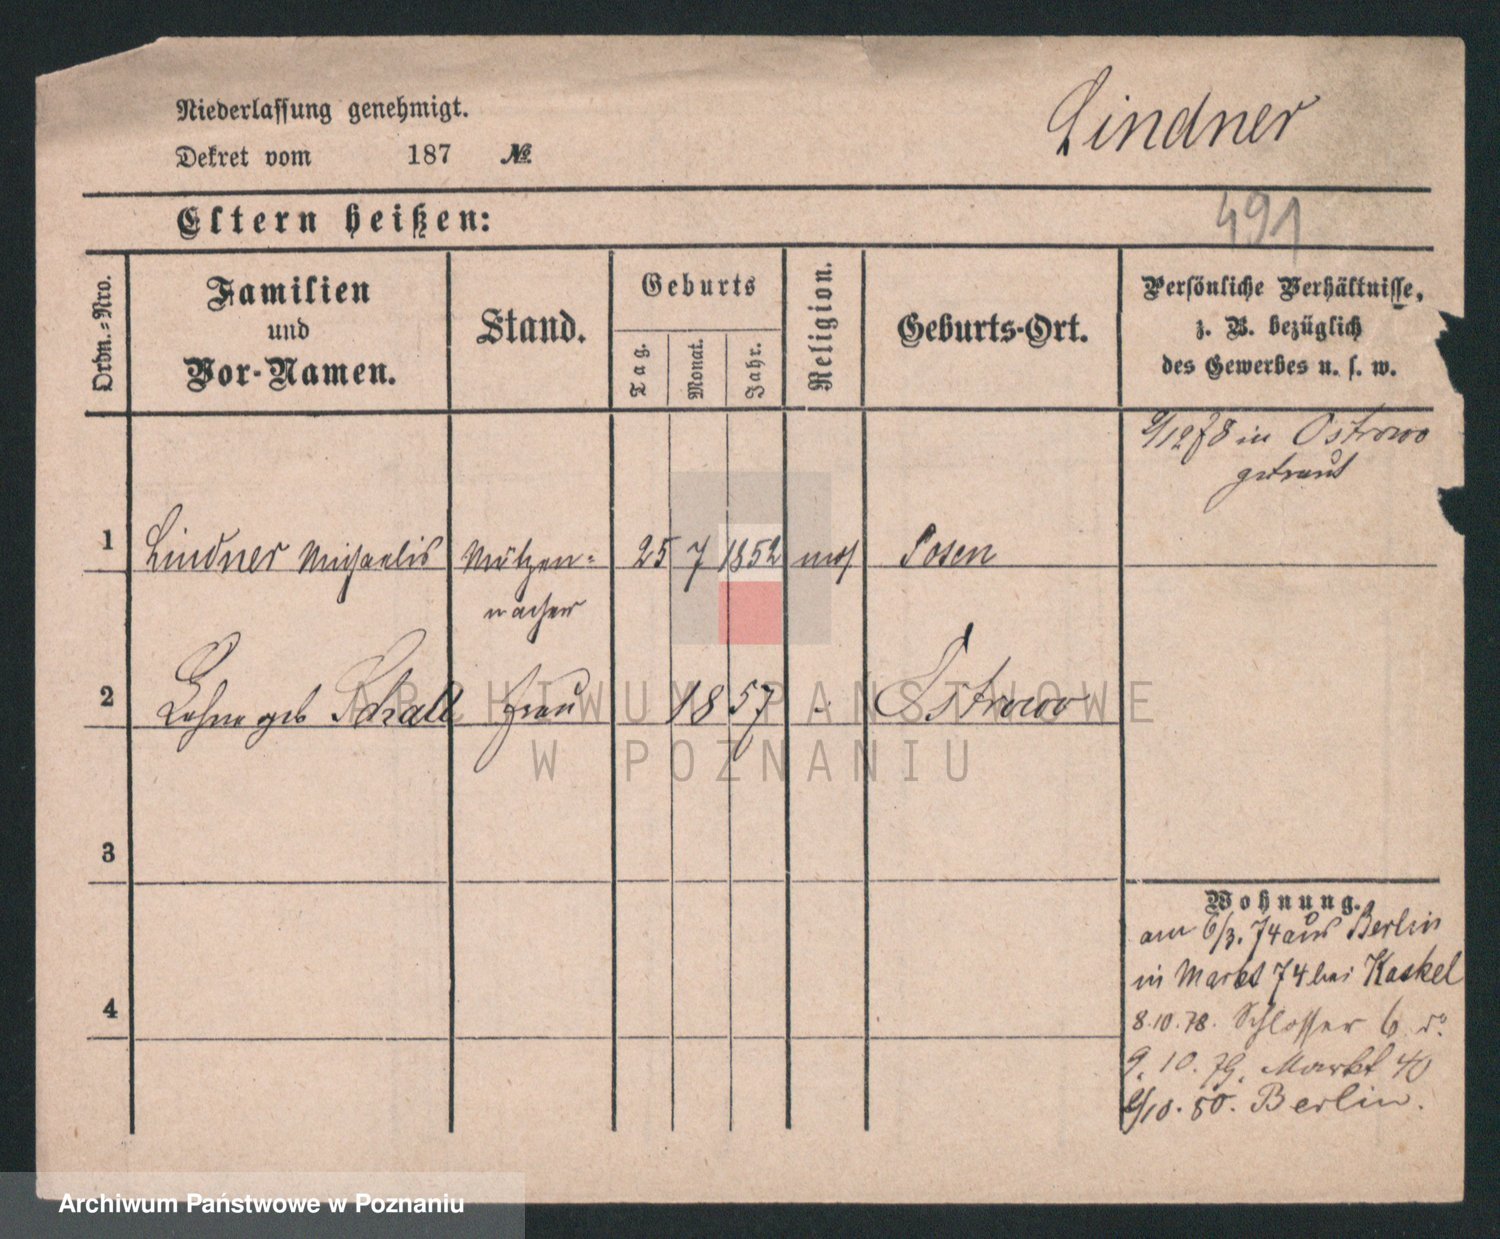 Niederlassung genehmigt.
Dekret vom 187 №
Lindner
491
Eltern heißen:
Ordn.-Nro.
Familien und Vor-Namen.
Stand.
Geburts
Tag. Monat. Jahr.
Religion.
Geburts-Ort.
Persönliche Verhältnisse, z. B. bezüglich des Gewerbes u. s. w.
9/12 78 in Ostrowo
getraut
1 Lindner Michaelis Mützen= 25 7 1852 mos Posen
macher
2 geb Schall Frau 1857 Ostrowo
ARCHIWUM PAŃSTWOWE
W POZNANIU
3
4
Wohnung.
am 6/3. 74 aus Berlin
in Markt 74 bei Kaskel
8.10.78. Schlosser 6
9.10.79. Markt 40
/10.80. Berlin.
Archiwum Państwowe w Poznaniu